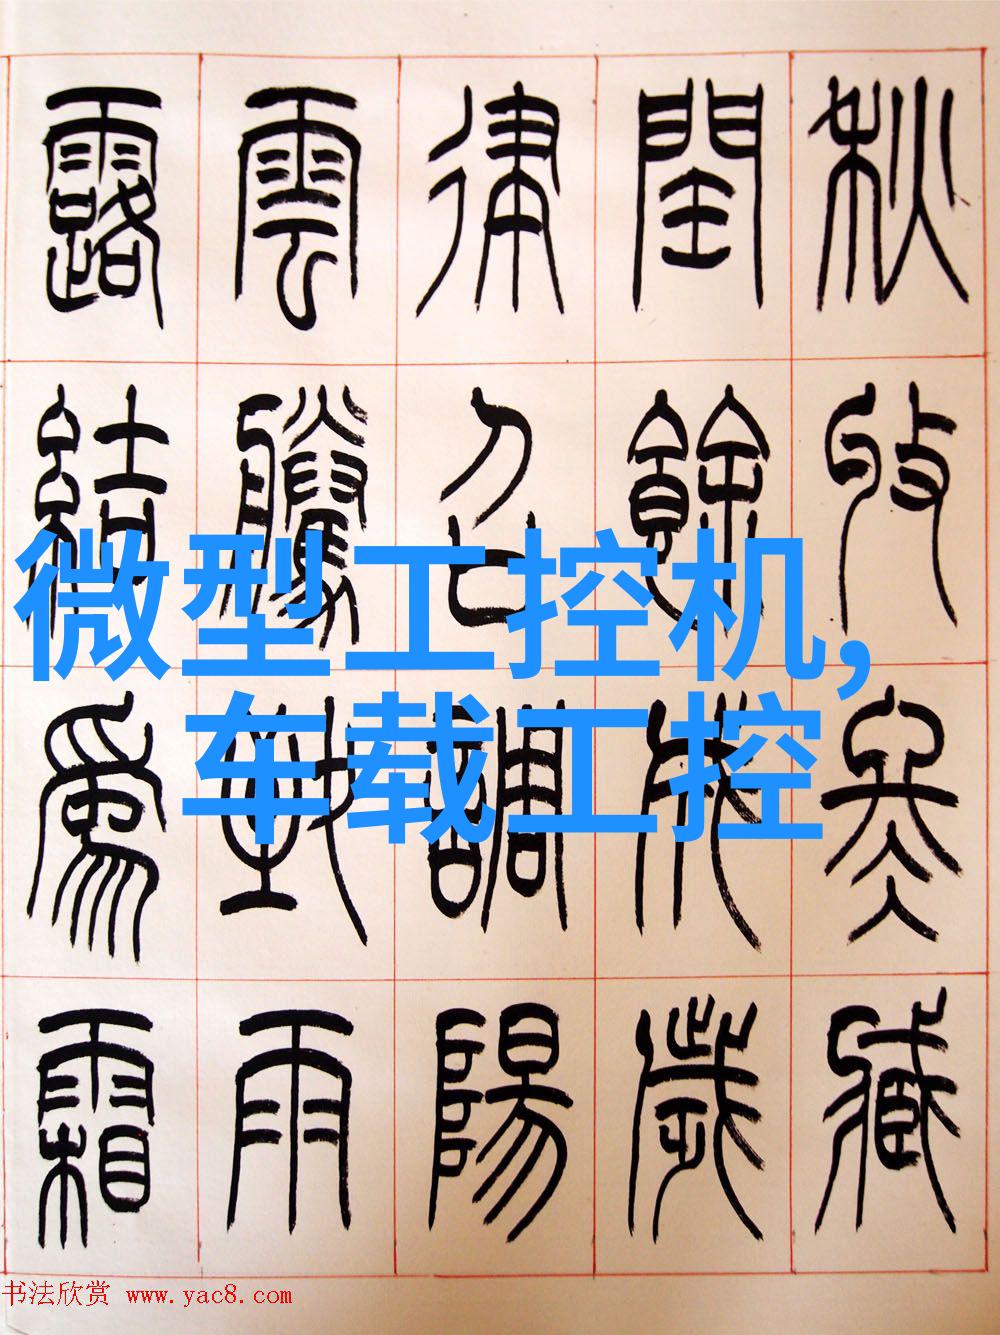 秋收冬藏
閏餘成歲
律召調陽
雲騰致雨
露結爲霜
微型工控机,
车载工控
书法欣赏 www.yac8.com